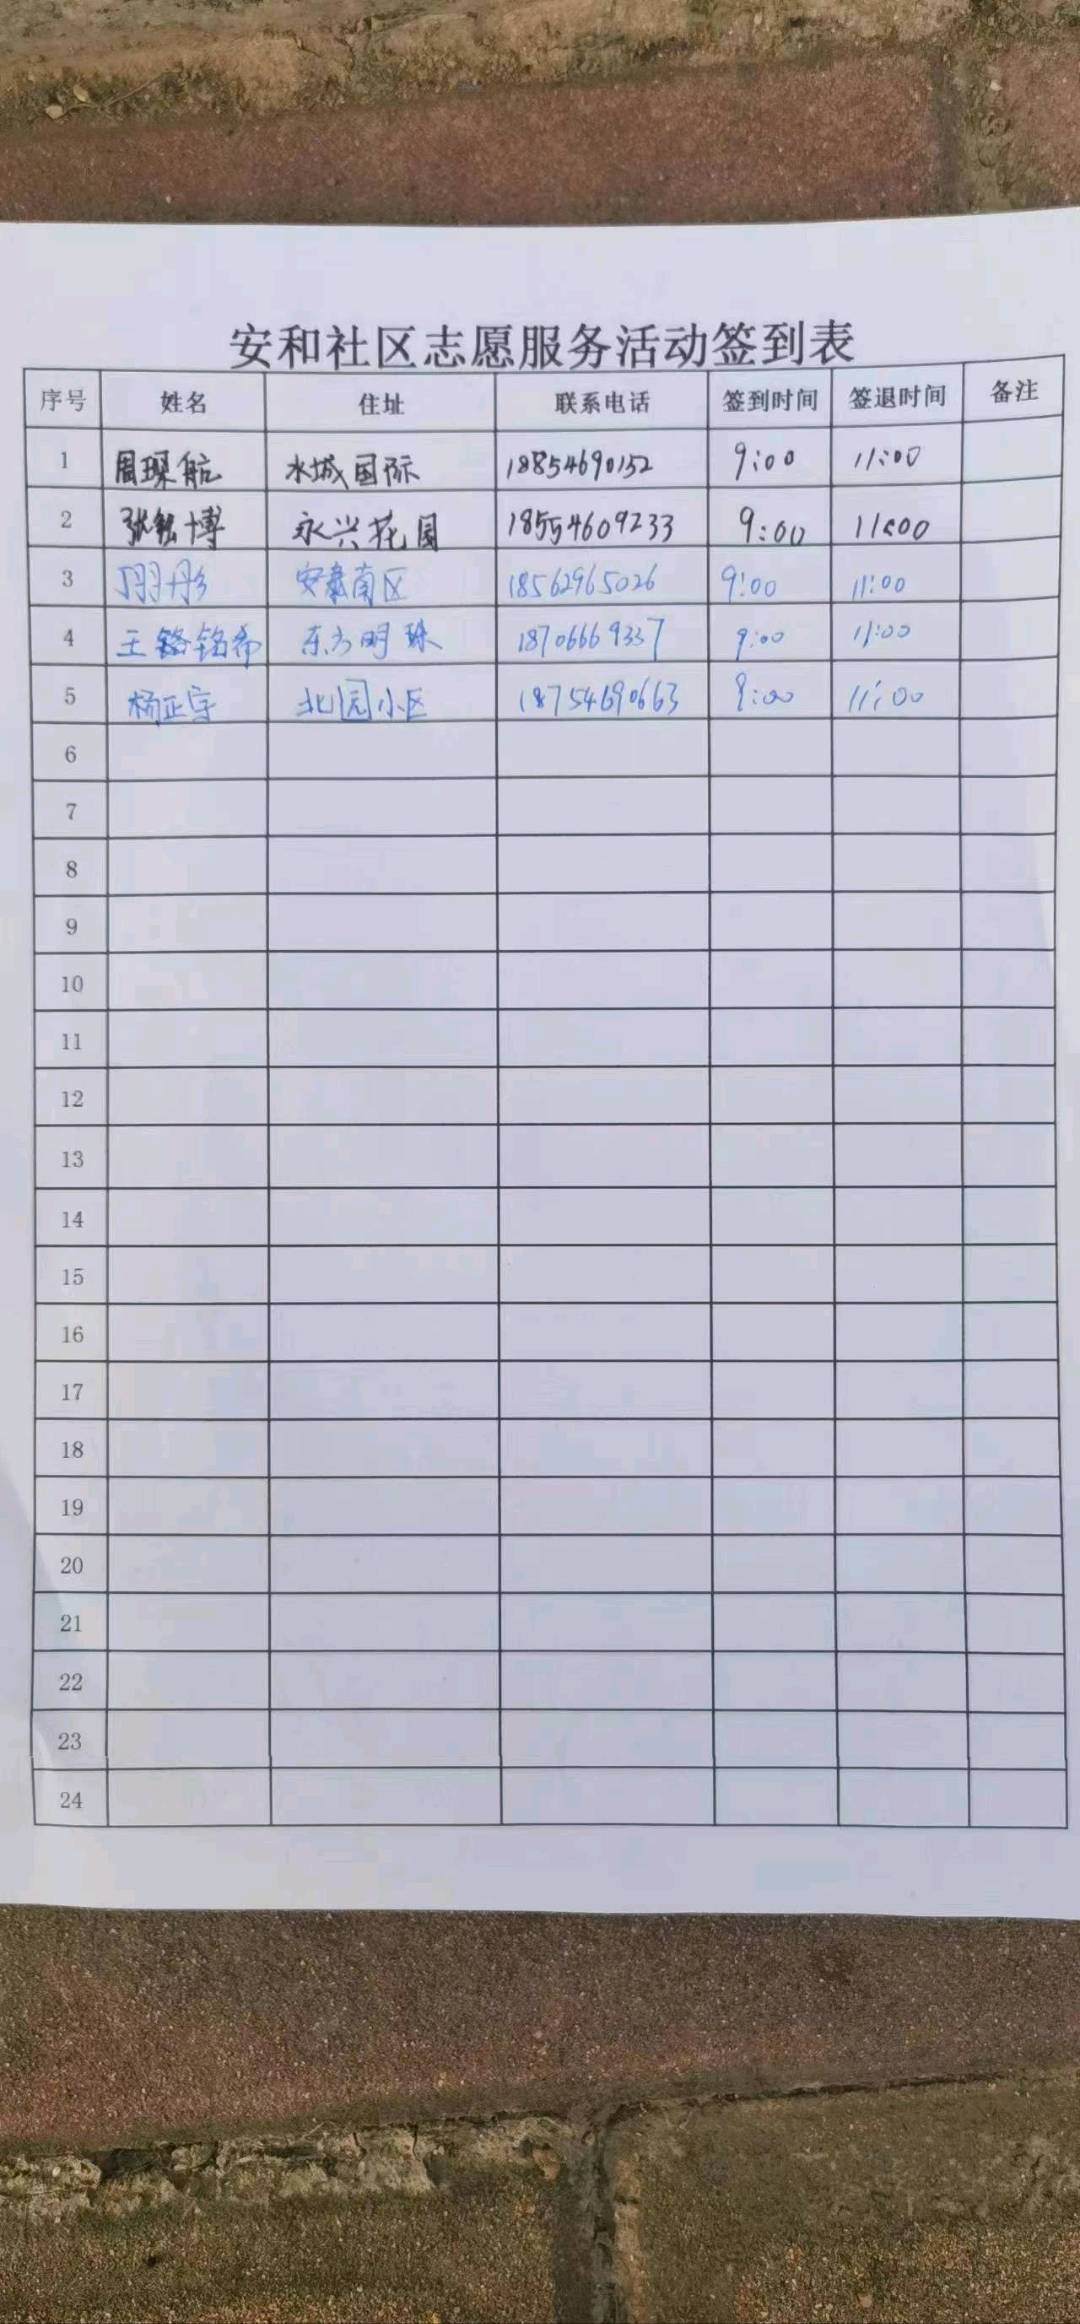 安和社区志愿服务活动签到表
序号 姓名 住址 联系电话 签到时间 签退时间 备注
1 周琛航 水城国际 18854690152 9:00 11:00
2 张铭博 永兴花园 18554609233 9:00 11:00
3 安泰南区 18562965026 9:00 11:00
4 王铭希 东方明珠 18706669337 9:00 11:00
5 杨正宇 北园小区 18754690663 9:00 11:00
6
7
8
9
10
11
12
13
14
15
16
17
18
19
20
21
22
23
24